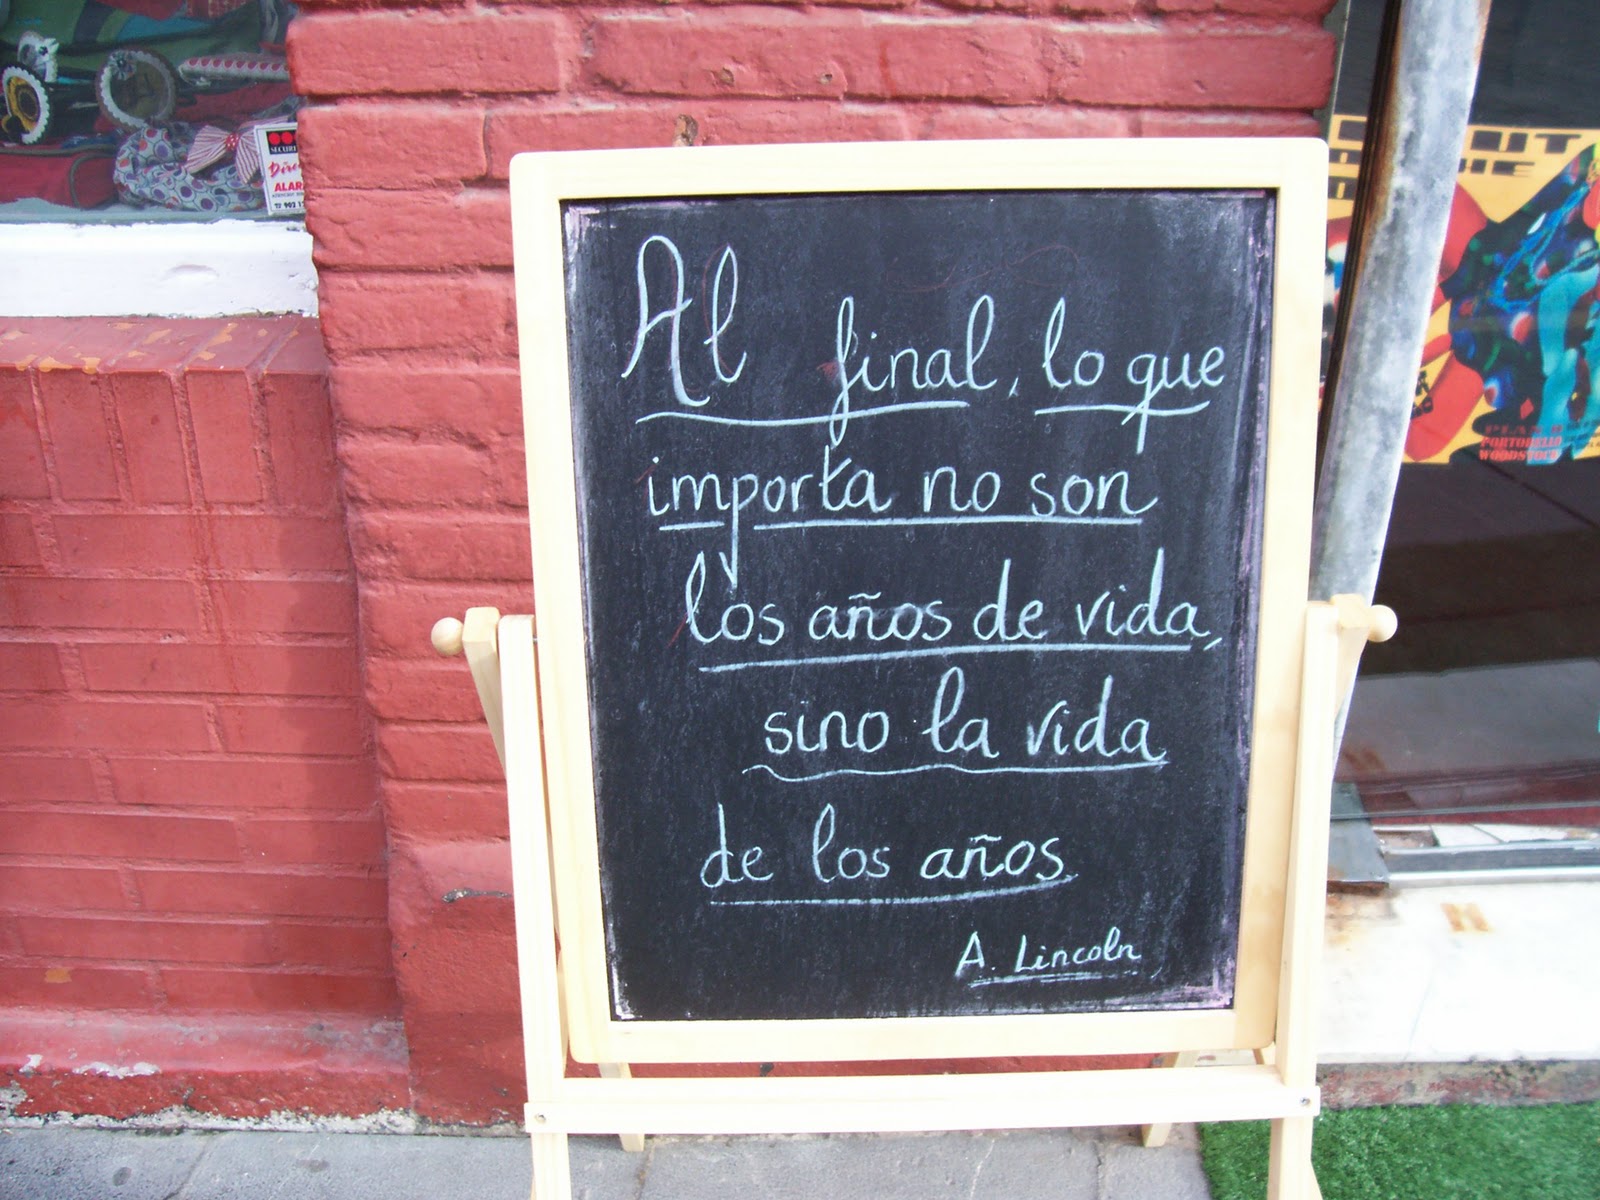 Al final, lo que
importa no son
los años de vida,
sino la vida
de los años.
A. Lincoln
ALAR
PORTOBELLO
WOODSTOCK